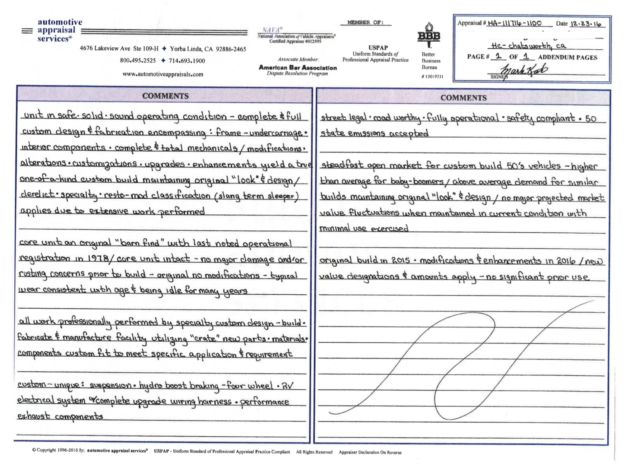 automotive
appraisal
services®
4676 Lakeview Ave Ste 109-H ✦ Yorba Linda, CA 92886-2465
800.495.2525 ✦ 714.693.1900
www.automotiveappraisals.com
NAVA®
National Association of Vehicle Appraisers®
Certified Appraiser
MEMBER OF:
Associate Member
American Bar Association
Dispute Resolution Program
USPAP
Uniform Standards of
Professional Appraisal Practice
BBB
Better
Business
Bureau
Appraisal # HA-111716-1100 Date 12-23-16
HC-chatsworth, ca
PAGE # 1 OF 1 ADDENDUM PAGES
SIGNED
COMMENTS
unit in safe·solid·sound operating condition - complete & full
custom design & fabrication encompassing: frame-undercarriage·
interior components · complete & total mechanicals/modifications·
alterations·customizations·upgrades·enhancements yield a true
one-of-a-kind custom build maintaining original "look" & design/
derelict·specialty·resto-mod classification (slang term sleeper)
applies due to extensive work performed
core unit an original "barn find" with last noted operational
registration in 1978/core unit intact - no major damage and/or
rusting concerns prior to build - original no modifications - typical
wear consistent with age & being idle for many years
all work professionally performed by specialty custom design-build·
fabricate & manufacture facility utilizing "crate" new parts·materials·
components custom fit to meet specific application & requirement
custom-unique: suspension·hydro boost braking-four wheel·RV
electrical system w/complete upgrade wiring harness·performance
exhaust components
COMMENTS
street legal·road worthy·fully operational·safety compliant·50
state emissions accepted
steadfast open market for custom build 50's vehicles - higher
than average for baby-boomers/above average demand for similar
builds maintaining original "look" & design/no major projected market
value fluctuations when maintained in current condition with
minimal use exercised
original build in 2015·modifications & enhancements in 2016/new
value designations & amounts apply - no significant prior use
© Copyright 1996-2010 By: automotive appraisal services® USPAP - Uniform Standard of Professional Appraisal Practice Compliant All Rights Reserved Appraiser Declaration On Reverse